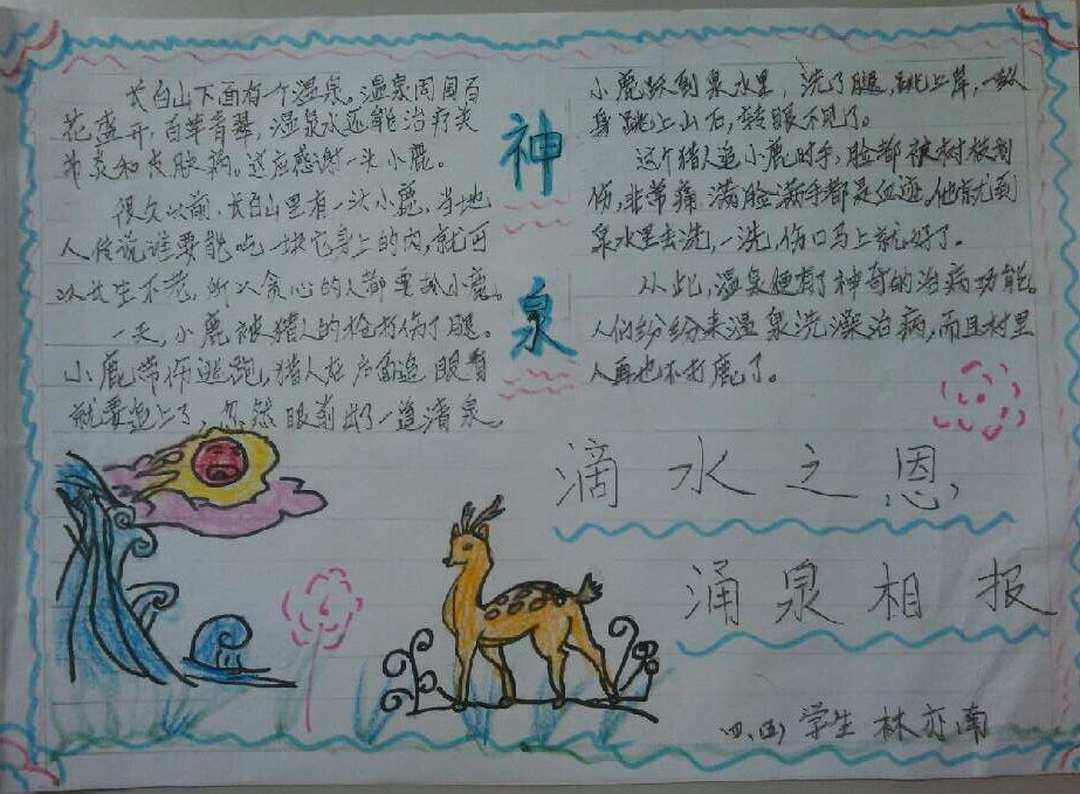 长白山下面有一个温泉。温泉周围百
花盛开,百草青翠,温泉水还能治疗关
节炎和皮肤病。这应感谢一头小鹿。
很久以前,长白山里有一头小鹿,当地
人传说谁要能吃一块它身上的肉,就可
以长生不老,所以贪心的人都要抓小鹿。
一天,小鹿被猎人的枪打伤了腿。
小鹿带伤逃跑,猎人在后面追,眼看
就要追上了,忽然眼前出了一道清泉,
神
泉
小鹿跃到泉水里,洗了腿,跳上岸,一纵
身跳上山石,转眼不见了。
这个猎人追小鹿时,手,脸都被树枝刮
伤,非常痛,满脸满手都是血迹。他就到
泉水里去洗,一洗,伤口马上就好了。
从此,温泉便有了神奇的治病功能。
人们纷纷来温泉洗澡治病,而且村里
人再也不打鹿了。
滴水之恩,
涌泉相报
四、(五) 学生 林亦南